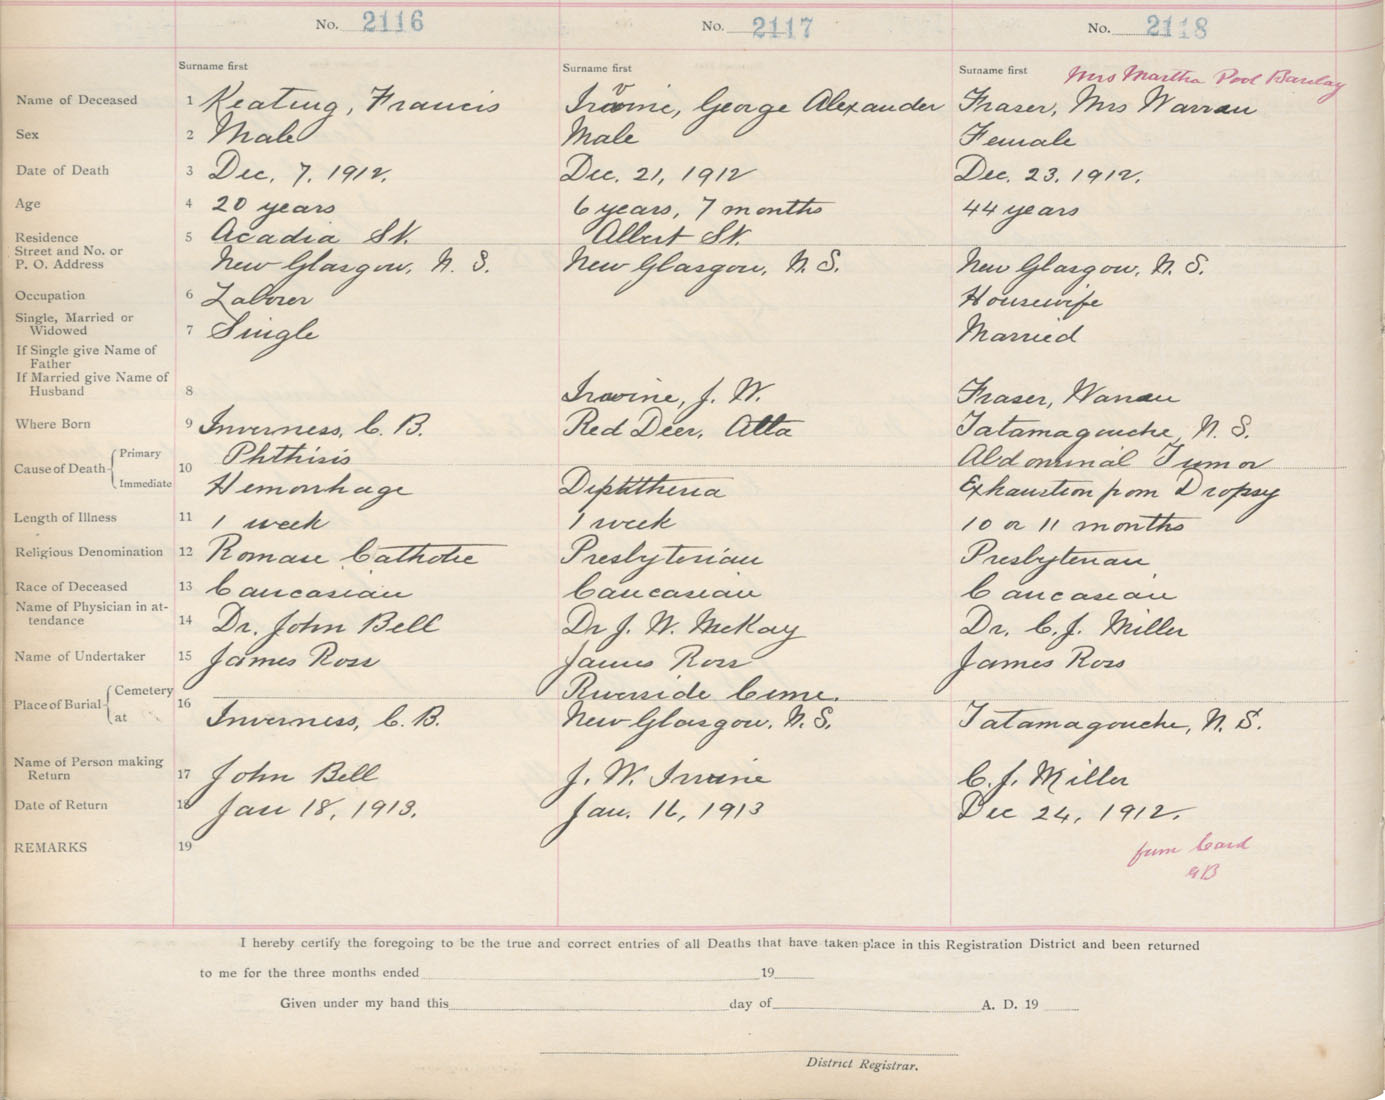 No. 2116 No. 2117 No. 2118
Surname first Surname first Surname first Mrs Martha Pool Barclay
Name of Deceased 1 Keating, Francis Irvine, George Alexander Fraser, Mrs Warran
Sex 2 Male Male Female
Date of Death 3 Dec. 7. 1912. Dec. 21, 1912 Dec. 23. 1912.
Age 4 20 years 6 years, 7 months 44 years
Residence 5 Acadia St. Albert St.
Street and No. or
P. O. Address New Glasgow, N. S. New Glasgow, N. S. New Glasgow, N. S.
Occupation 6 Laborer Housewife
Single, Married or
Widowed 7 Single Married
If Single give Name of
Father
If Married give Name of
Husband 8 Irvine, J. W. Fraser, Warran
Where Born 9 Inverness, C. B. Red Deer, Alta Tatamagouche, N. S.
Cause of Death Primary 10 Phthisis Abdominal Tumor
Immediate Hemorrhage Diphtheria Exhaustion from Dropsy
Length of Illness 11 1 week 1 week 10 or 11 months
Religious Denomination 12 Roman Catholic Presbyterian Presbyterian
Race of Deceased 13 Caucasian Caucasian Caucasian
Name of Physician in at-
tendance 14 Dr. John Bell Dr J. W. McKay Dr. C. J. Miller
Name of Undertaker 15 James Ross James Ross James Ross
Place of Burial Cemetery 16 Riverside Ceme.
at Inverness, C. B. New Glasgow, N. S. Tatamagouche, N. S.
Name of Person making
Return 17 John Bell J. W. Irvine C. J. Miller
Date of Return 18 Jan 18, 1913. Jan. 16, 1913 Dec 24, 1912.
REMARKS 19 from Card
GB
I hereby certify the foregoing to be the true and correct entries of all Deaths that have taken place in this Registration District and been returned
to me for the three months ended 19
Given under my hand this day of A. D. 19
District Registrar.